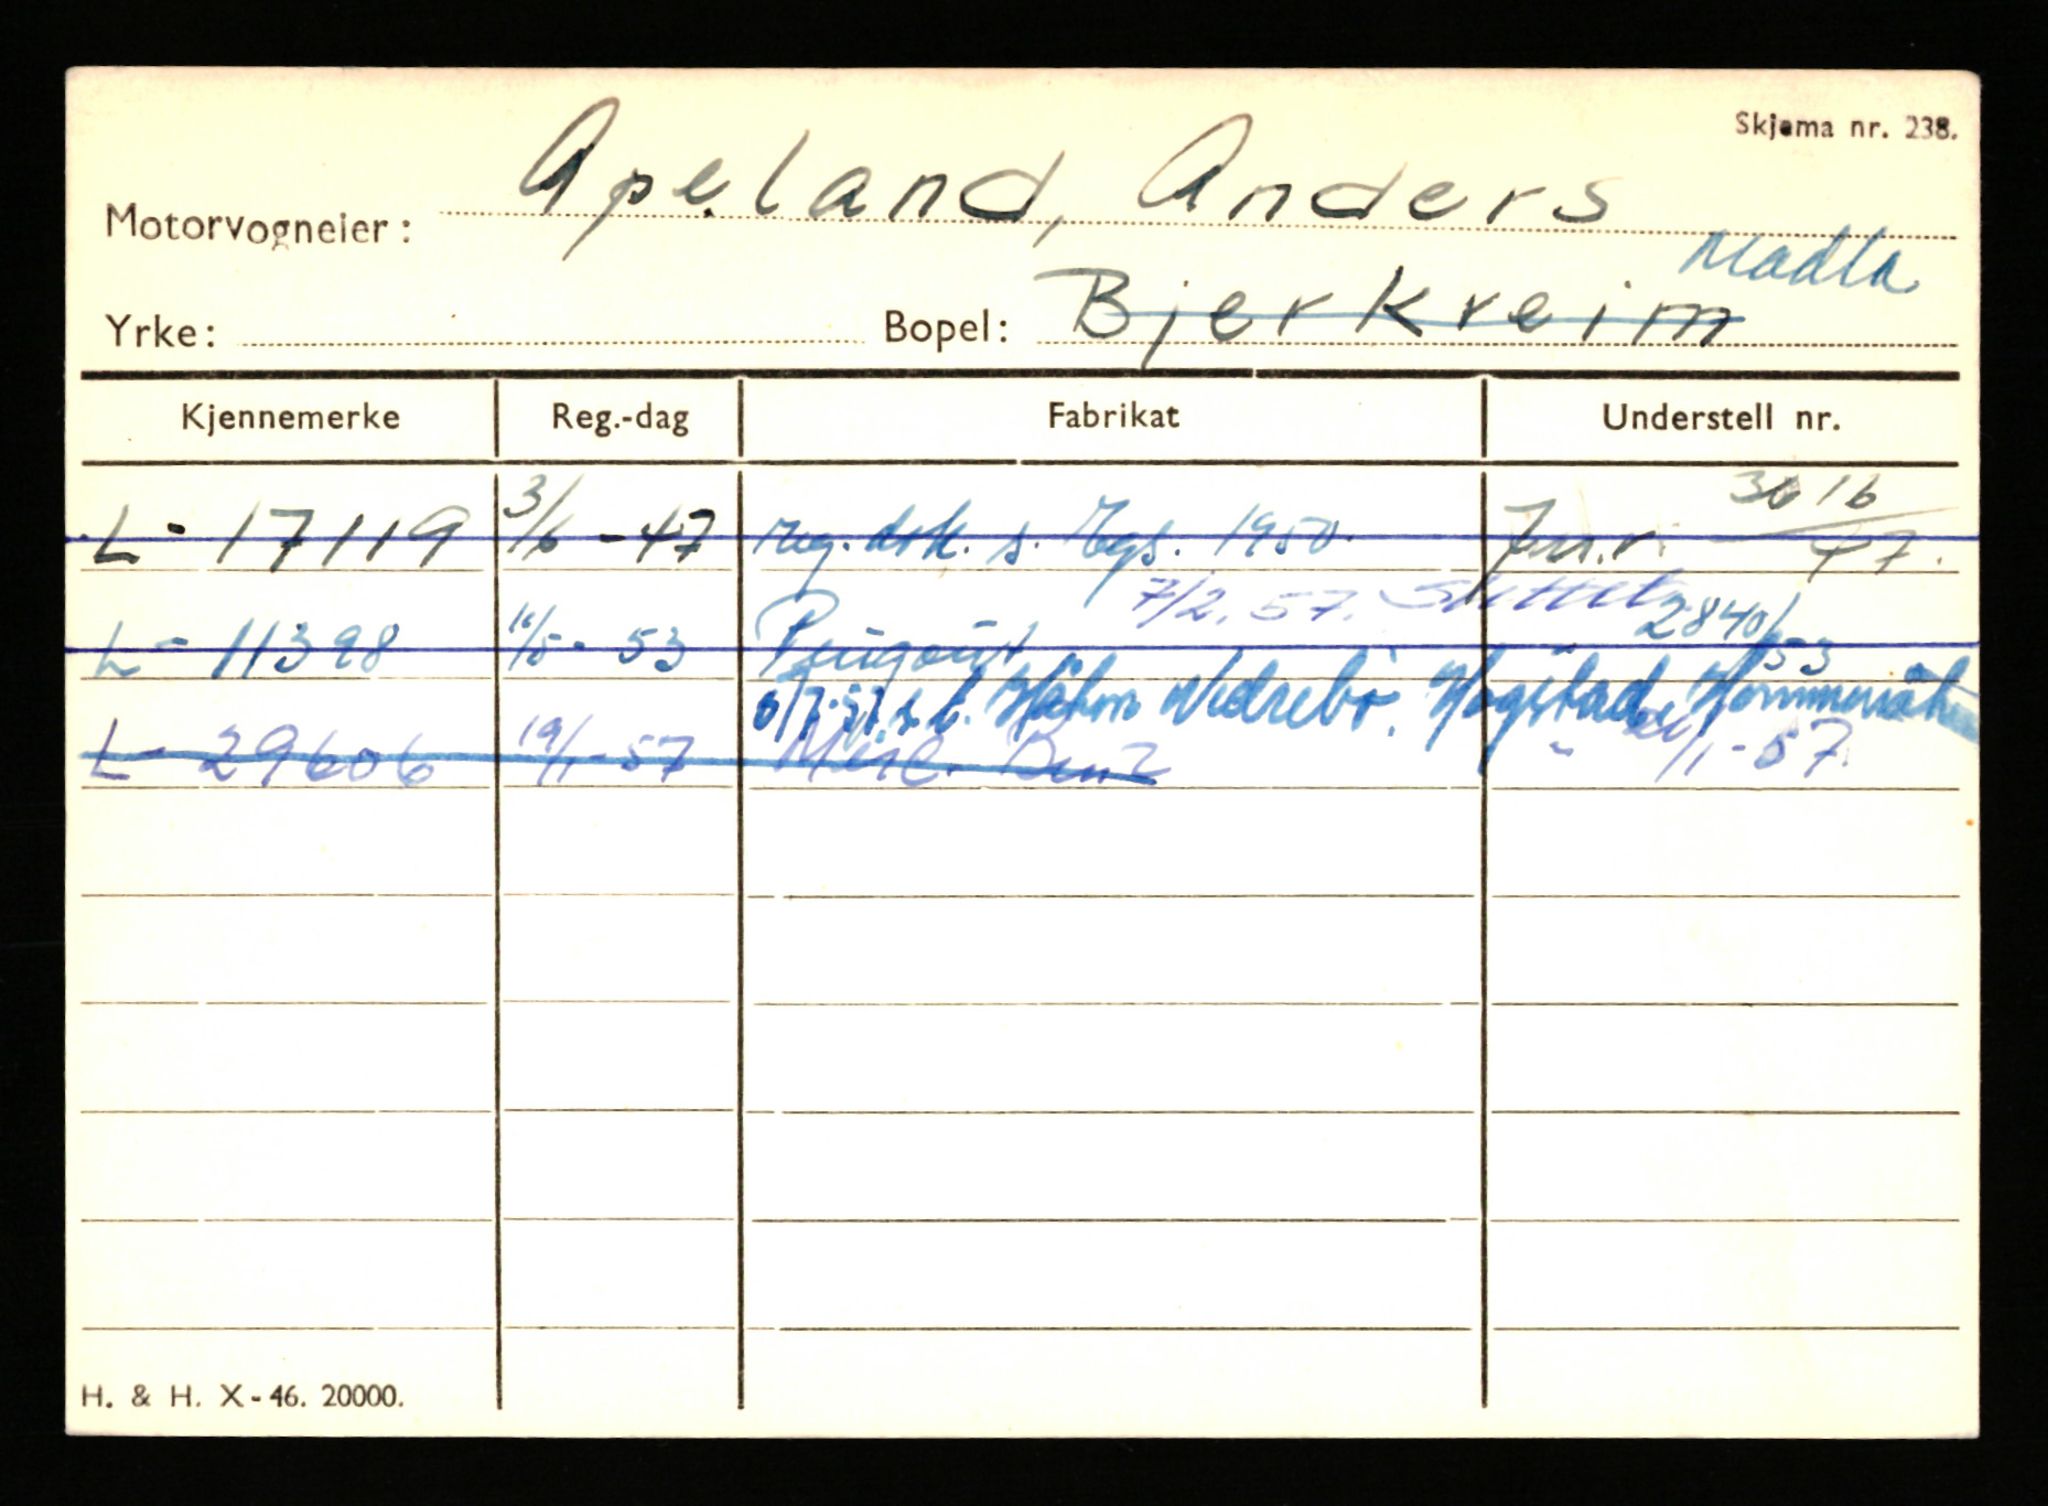 Skjema nr. 238.
Motorvogneier: Apeland, Anders
Madla
Yrke: Bopel: Bjerkreim
Kjennemerke Reg.-dag Fabrikat Understell nr.
L - 17119 3/6 - 47 reg. s. 1950. J.nr. 3616/47.
7/2. 57. Slettet
L - 11398 11/5 - 53 Peugeot 2840/53
6/7-57 s. t. Nedrebø.
L - 29606 19/1 - 57 Merc. Benz " /1 - 57.
H. & H. X - 46. 20000.